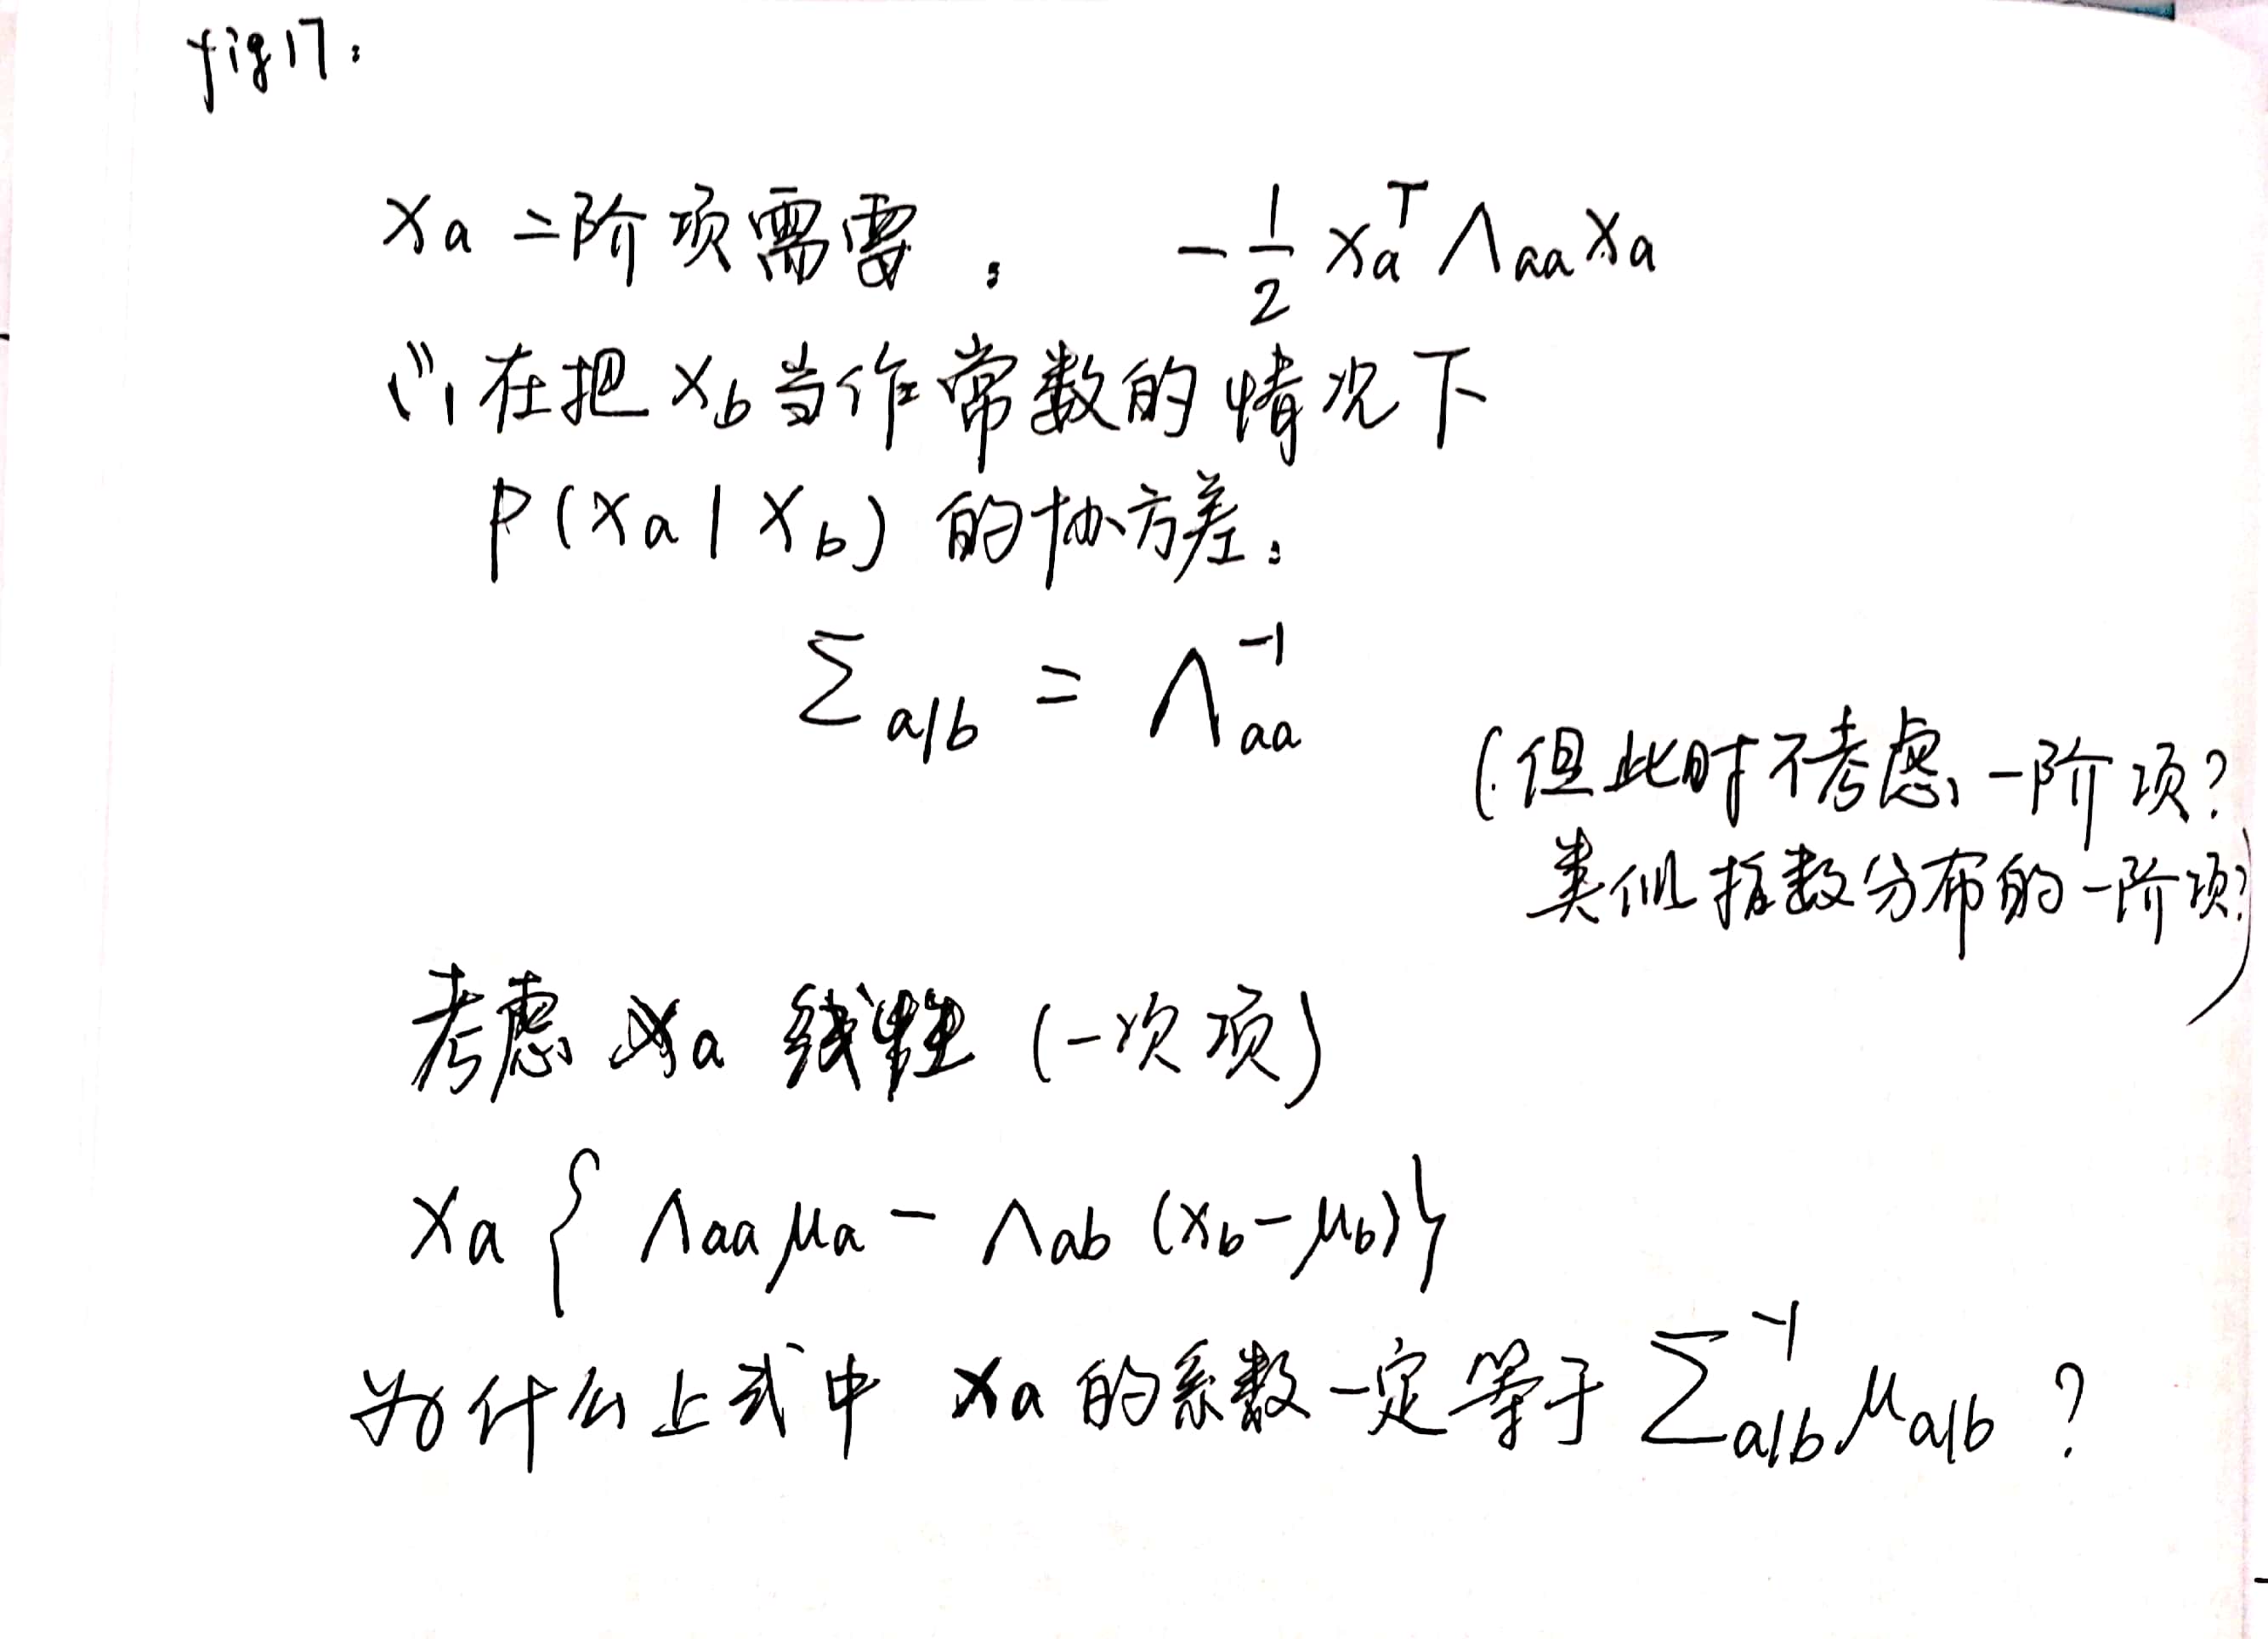 fig17:
xa 二阶项需要: -1/2 xa^T Λaa xa
在把 xb 当作常数的情况下
p(xa | xb) 的协方差:
Σa|b = Λaa^-1
(但此时不考虑一阶项?
类似指数分布的一阶项?)
考虑 xa 线性 (一次项)
xa { Λaa μa - Λab (xb - μb) }
为什么上式中 xa 的系数一定等于 Σa|b^-1 μa|b ?